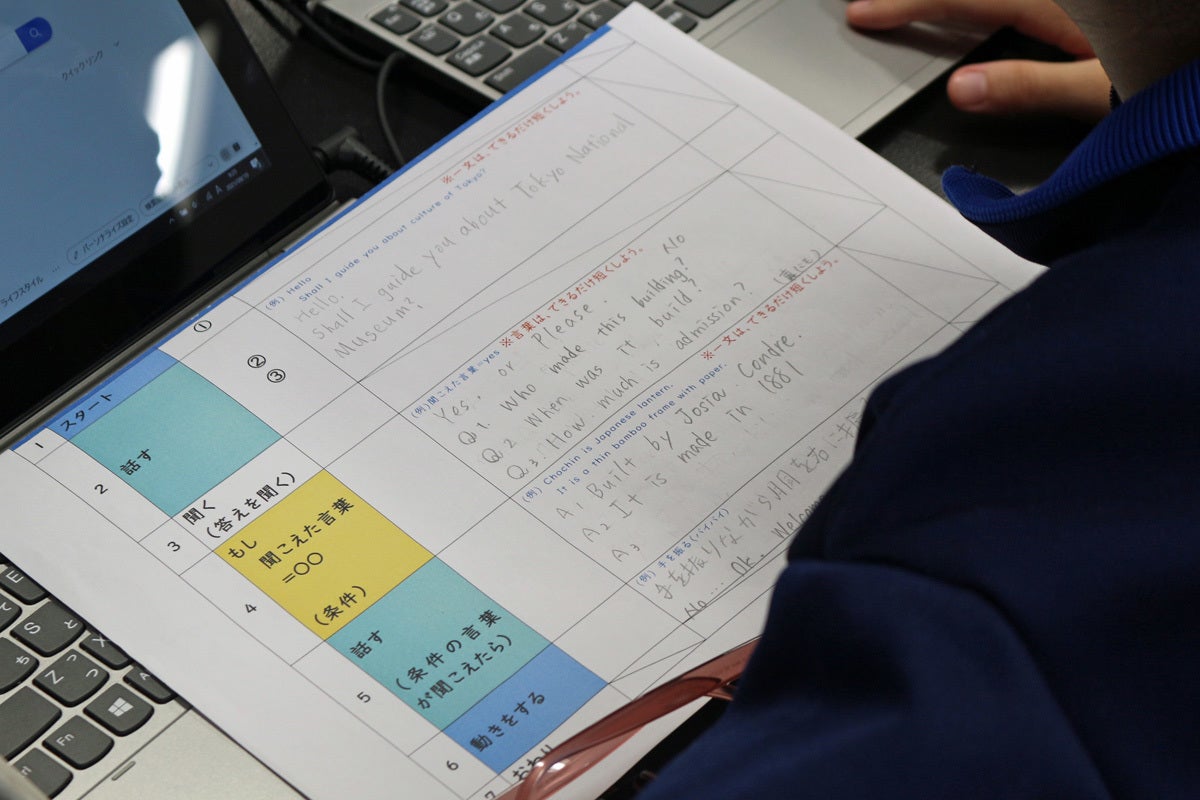 クイックリンク
パーソナライズ設定
ライフスタイル
①
②
③
1
スタート
2
話す
3
聞く
(答えを聞く)
4
もし
聞こえた言葉
=〇〇
(条件)
5
話す
(条件の言葉
が聞こえたら)
6
動きをする
7
おわり
※一文は、できるだけ短くしよう。
(例) Hello
Shall I guide you about culture of Tokyo?
Hello.
Shall I guide you about Tokyo National
Museum?
※言葉は、できるだけ短くしよう。
(例)聞こえた言葉=yes
Yes, or Please. No
Q1. Who made this building?
Q2. When was it build?
Q3. How much is admission?
※一文は、できるだけ短くしよう。
(例) Chochin is Japanese lantern.
It is a thin bamboo frame with paper.
A1 Built by Josia. Condre.
A2 It is made in 1881
A3
(例) 手を振る(バイバイ)
手を振りながら
No... Ok. Welcome